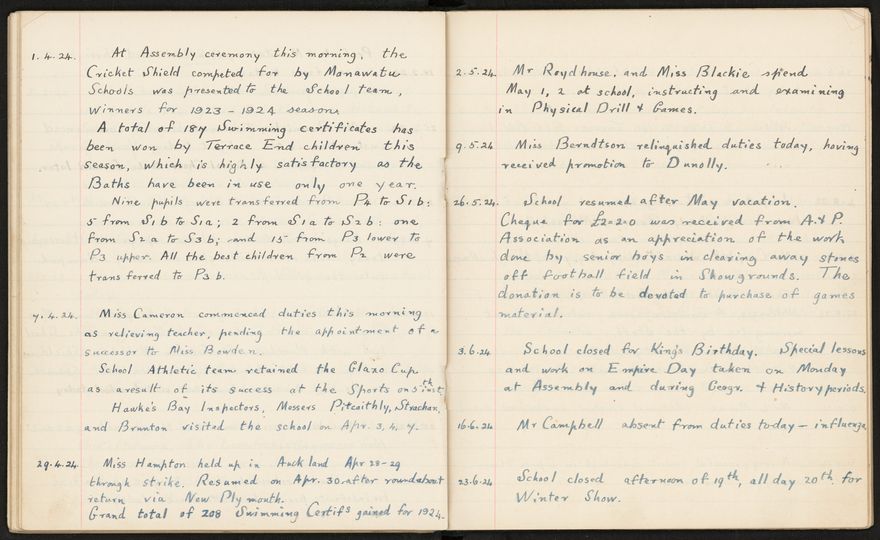 1.4.24. At Assembly ceremony this morning, the
Cricket Shield competed for by Manawatu
Schools was presented to the School team,
winners for 1923 - 1924 season.
A total of 187 Swimming certificates has
been won by Terrace End children this
season, which is highly satisfactory as the
Baths have been in use only one year.
Nine pupils were transferred from P4 to S1b:
5 from S1b to S1a; 2 from S1a to S2b: one
from S2a to S3b; and 15 from P3 lower to
P3 upper. All the best children from P2 were
transferred to P3b.
7.4.24. Miss Cameron commenced duties this morning
as relieving teacher, pending the appointment of a
successor to Miss Bowden.
School Athletic team retained the Glaxo Cup
as a result of its success at the Sports on 5th inst.
Hawke's Bay Inspectors, Messers Pitcaithly, Strachan,
and Brunton visited the school on Apr. 3, 4, 7.
29.4.24. Miss Hampton held up in Auckland Apr 28-29
through strike. Resumed on Apr. 30. after roundabout
return via New Plymouth.
Grand total of 208 Swimming Certifs gained for 1924.
2.5.24. Mr Roydhouse, and Miss Blackie spend
May 1, 2 at school, instructing and examining
in Physical Drill & Games.
9.5.24 Miss Berndtson relinquished duties today, having
received promotion to Dunolly.
26.5.24. School resumed after May vacation.
Cheque for £2=2=0 was received from A. & P.
Association as an appreciation of the work
done by senior boys in clearing away stones
off football field in Showgrounds. The
donation is to be devoted to purchase of games
material.
3.6.24 School closed for King's Birthday. Special lessons
and work on Empire Day taken on Monday
at Assembly and during Geogr. & History periods.
16.6.24 Mr Campbell absent from duties today - influenza
23.6.24 School closed afternoon of 19th, all day 20th for
Winter Show.